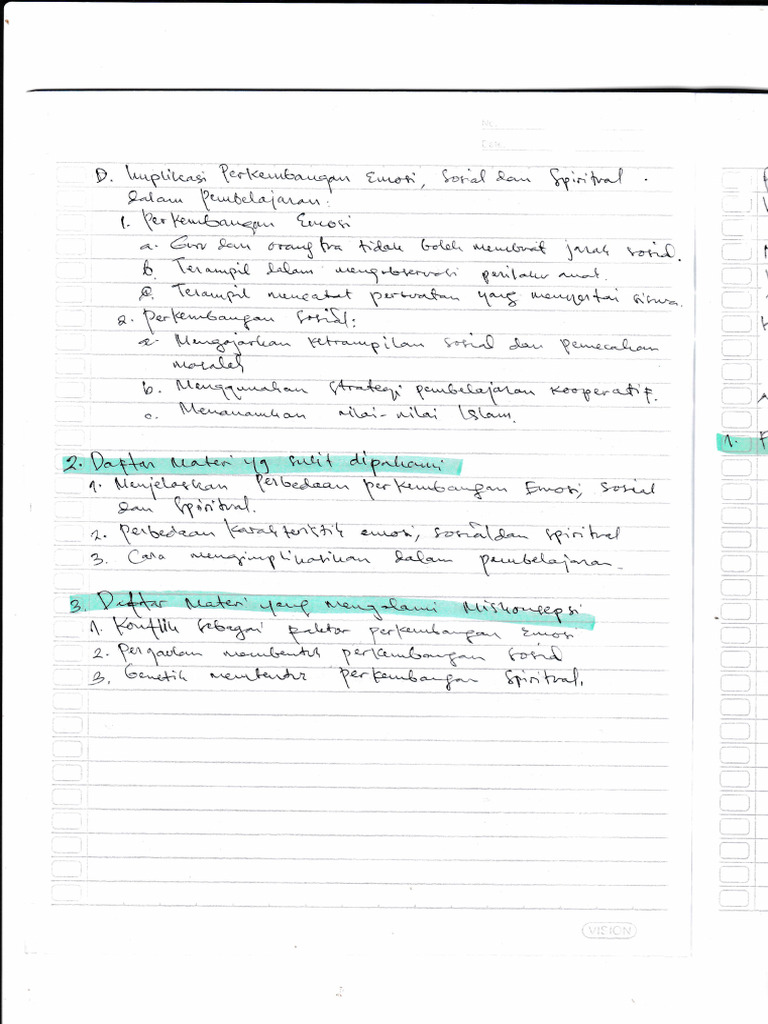 No.
Date
D. Implikasi Perkembangan Emosi, Sosial dan Spiritual.
dalam Pembelajaran:
1. Perkembangan Emosi
a. Guru dan orang tua tidak boleh membuat jarak sosial.
b. Terampil dalam mengobservasi perilaku anak.
c. Terampil mencatat perbuatan yang menyertai siswa.
2. Perkembangan Sosial:
a. Mengajarkan ketrampilan sosial dan pemecahan
masalah
b. Menggunakan strategi pembelajaran kooperatif.
c. Menanamkan nilai-nilai Islam.
2. Daftar Materi yg sulit dipahami
1. Menjelaskan Perbedaan perkembangan Emosi, sosial
dan Spiritual.
2. Perbedaan karakteristik emosi, sosial dan spiritual
3. Cara mengimplikasikan dalam pembelajaran.
3. Daftar Materi yang mengalami Miskonsepsi
1. Konflik sebagai faktor perkembangan Emosi
2. Pergaulan membentuk perkembangan sosial
3. Genetik membentuk perkembangan Spiritual.
1. F
VISION